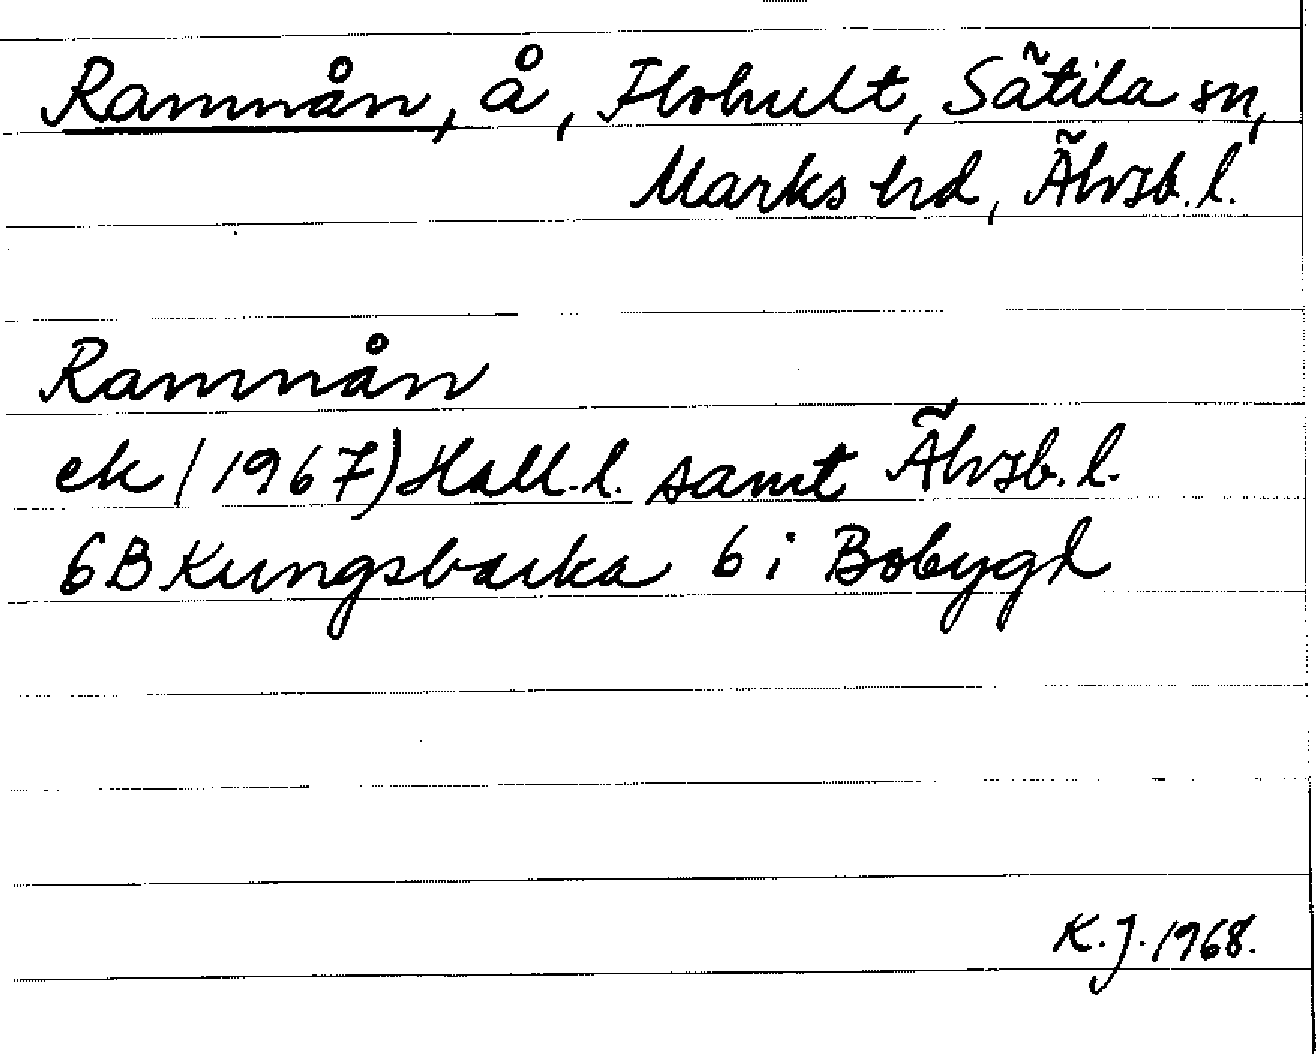 Ramnån, å, Flohult, Sätila sn,
Marks hd, Älvsb. l.
Ramnån
ek (1967) Hall. l. samt Älvsb. l.
6B Kungsbacka 6 i Bobygd
K. J. 1968.